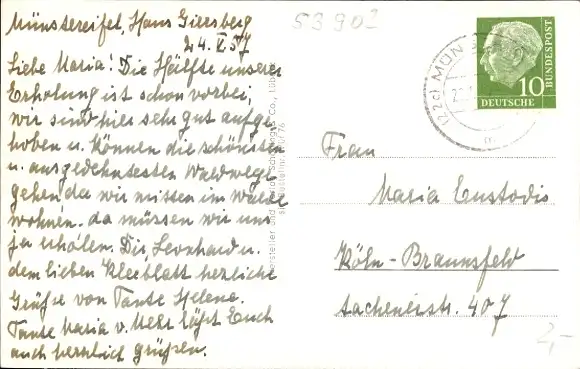 Münstereifel, Haus Giersberg
24. V. 57
Liebe Maria! Die Hälfte unserer
Erholung ist schon vorbei,
wir sind hier sehr gut aufge-
hoben u. können die schönsten
u. ausgedehntesten Waldwege
gehen da wir mitten im Walde
wohnen. da müssen wir uns
ja erholen. Dir, Leonhard u.
dem lieben Kleeblatt herzliche
Grüße von Tante Helene.
Tante Maria v. Mehr läßt Euch
auch herzlich grüßen.
53902
(22c) MÜN
10
DEUTSCHE
BUNDESPOST
Frau
Maria Custodis
Köln-Braunsfeld
Aachenerstr. 407
2,-